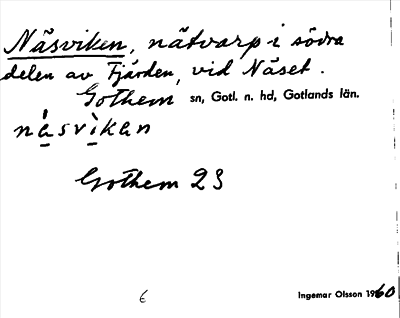 Näsviken, nätvarp i södra
delen av Fjärden, vid Näset.
Gothem sn, Gotl. n. hd, Gotlands län.
nä̀svìkan
Gothem 23
6
Ingemar Olsson 1960